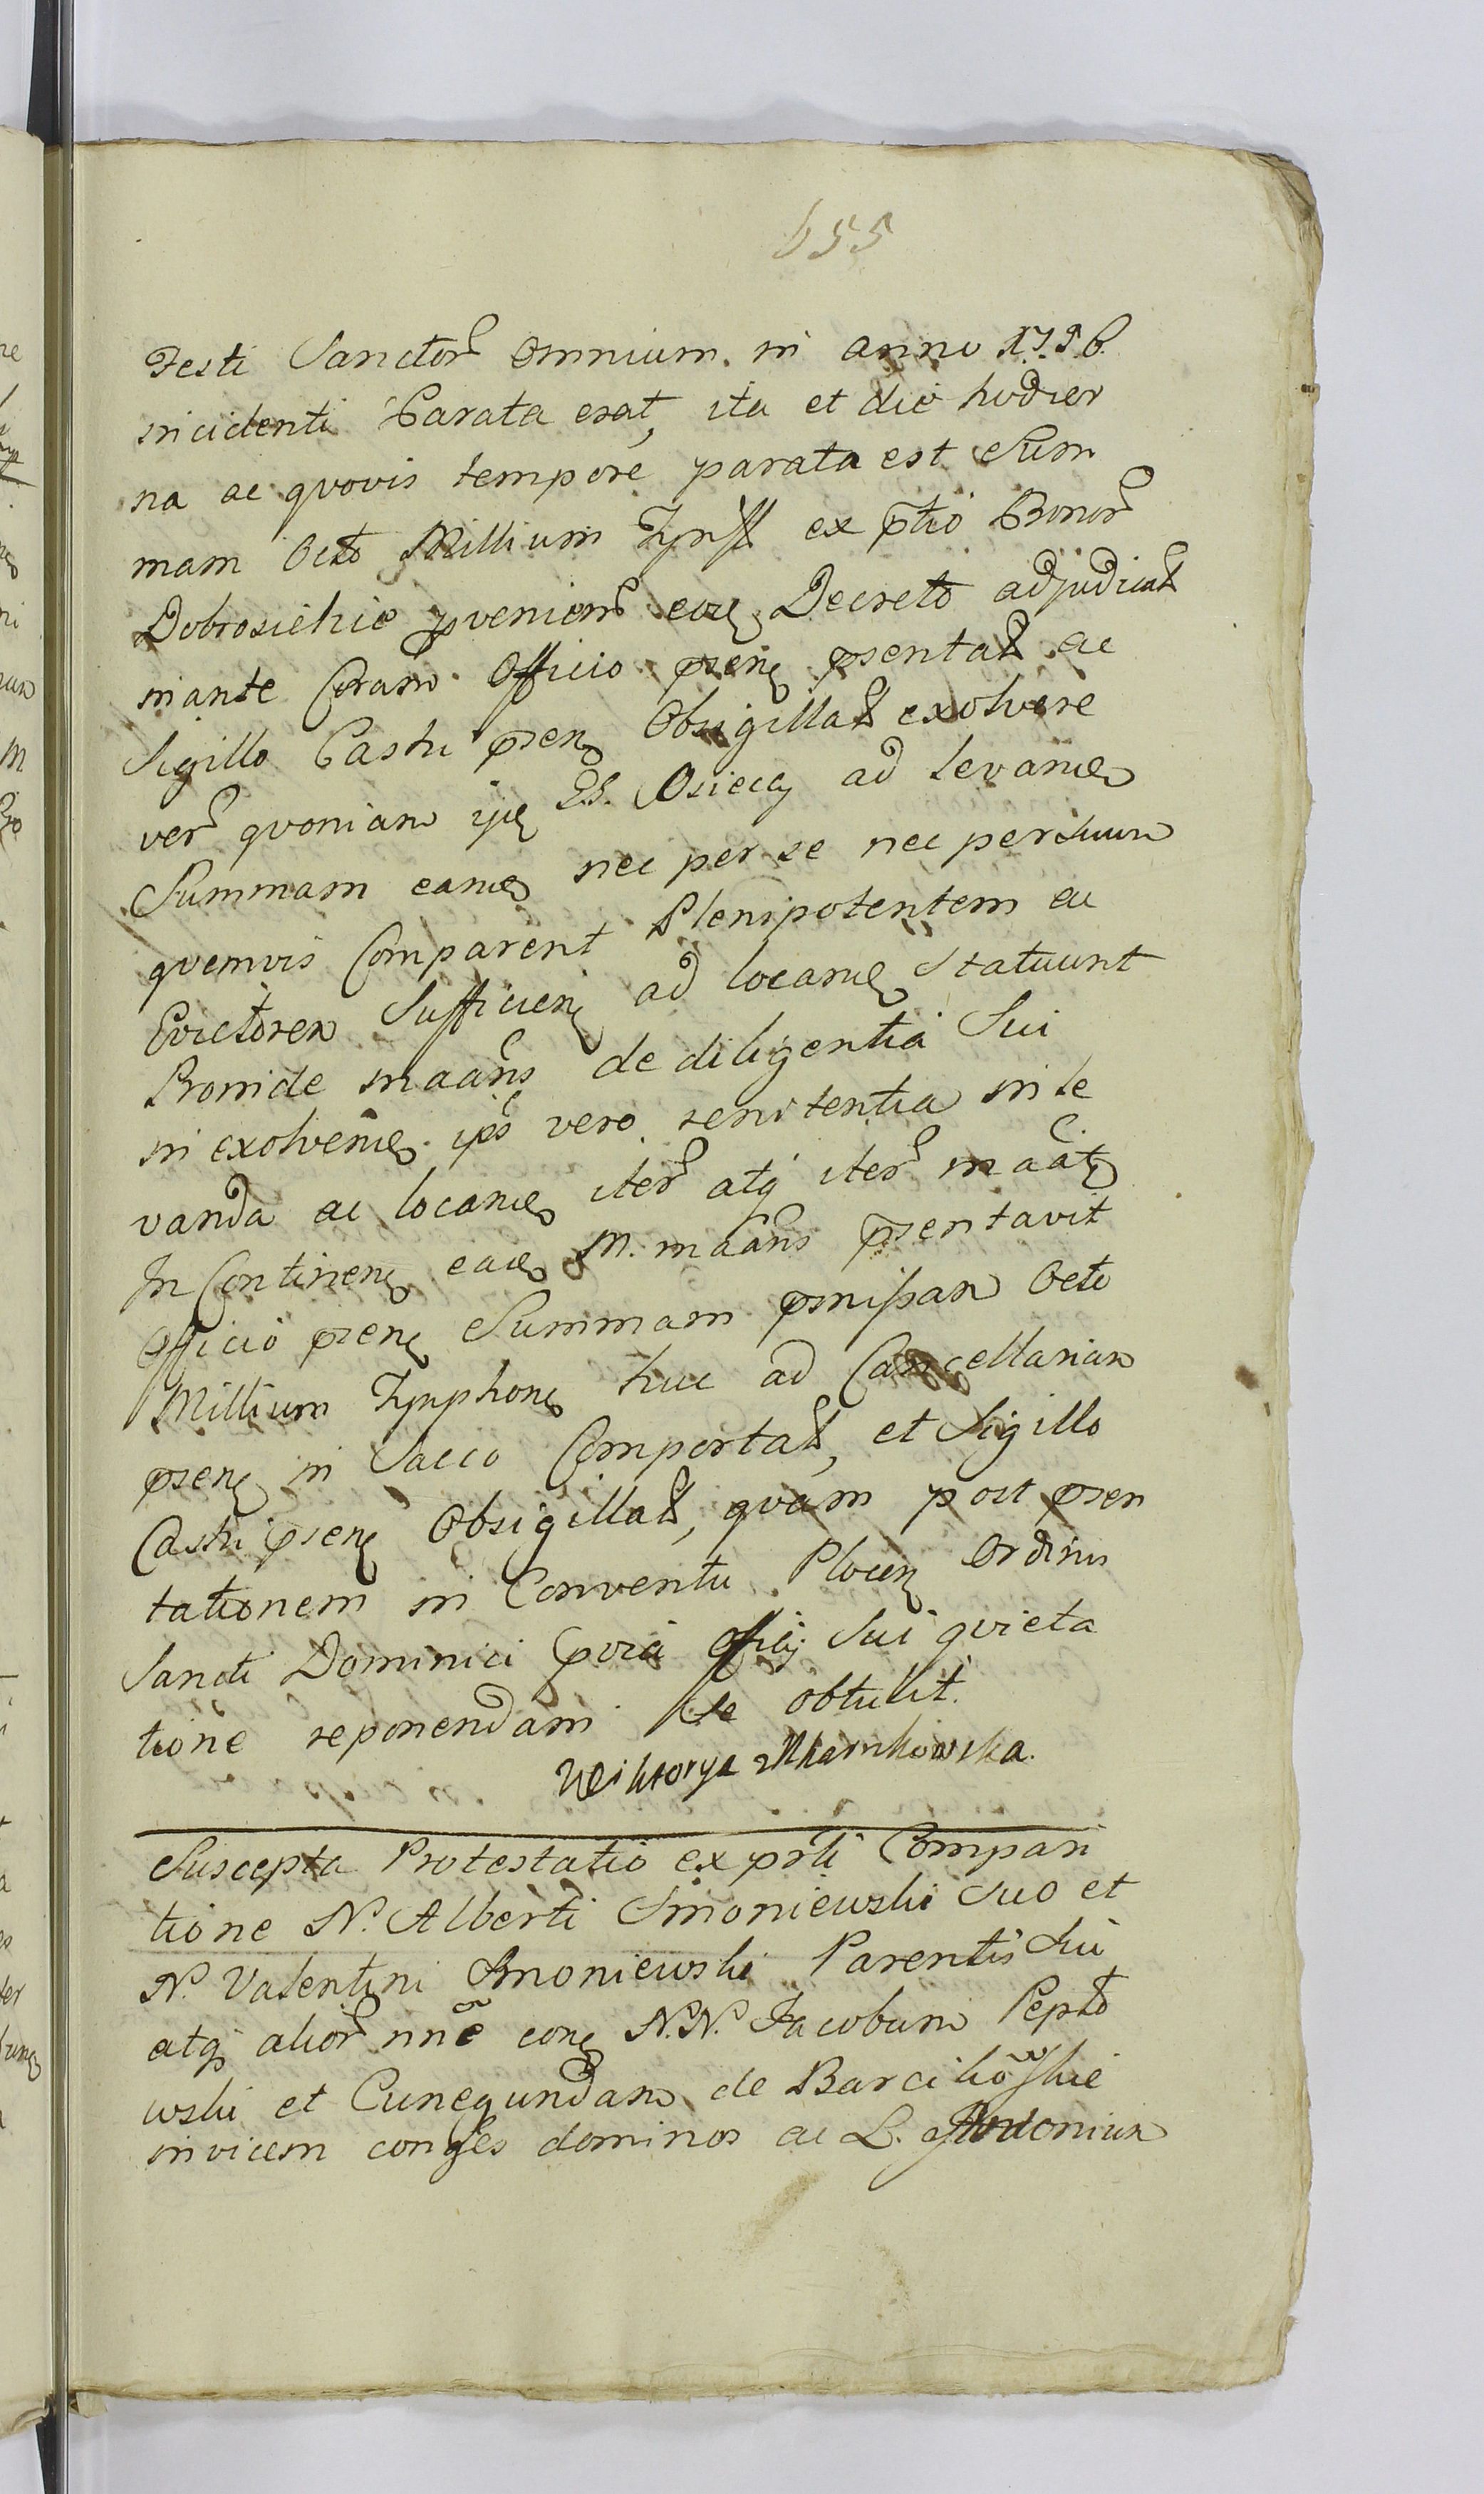 655
Festi Sanctor Omnium in anno 1756
incidenti Parata erat, ita et die hodier
na ac quovis tempore parata est Sum
mam Octo Millium Tynff ex ptio Bonor
Dobrosielice pvenien eoq Decreto adjudicat
mante Coram Officio psenę psentat ac
Sigillo Castri psenę Obsigillat exolvere
ver qvoniam ijdę GG. Osieccy ad levandę
Summam eandę nec per se nec per suum
qvemvis Comparent Plenipotentem ac
Evictorem Sufficienę ad locandę Statuunt
Proinde maans de diligentia Sui
in exolvendę ipōs vero renitentia in le
vanda ac locandę iter atq iter maatę
In Continenę eadę M. maans psentavit
Officio psenę Summam pmissam Octo
Millium Tynphonę huc ad Cancellariam
psenę in Sacco Comportat, et Sigillo
Castri psenę Obsigillat, qvam post psen
tationem in Conventu Plocenę Ordinis
Sancti Dominici pvia Officij Sui qvieta
tione reponendam se obtulit.
Wiktorya Mkarnkowska.
Suscepta Protestatio ex prti Compari
tione N. Alberti Smoniewski Suo et
N. Valentini Smoniewski Parentis Sui
atq alior nnē conę N.N. Jacobum Pepło
wski et Cunegundam de Barcikōskie
invicem conges dominos ac G. Antonium